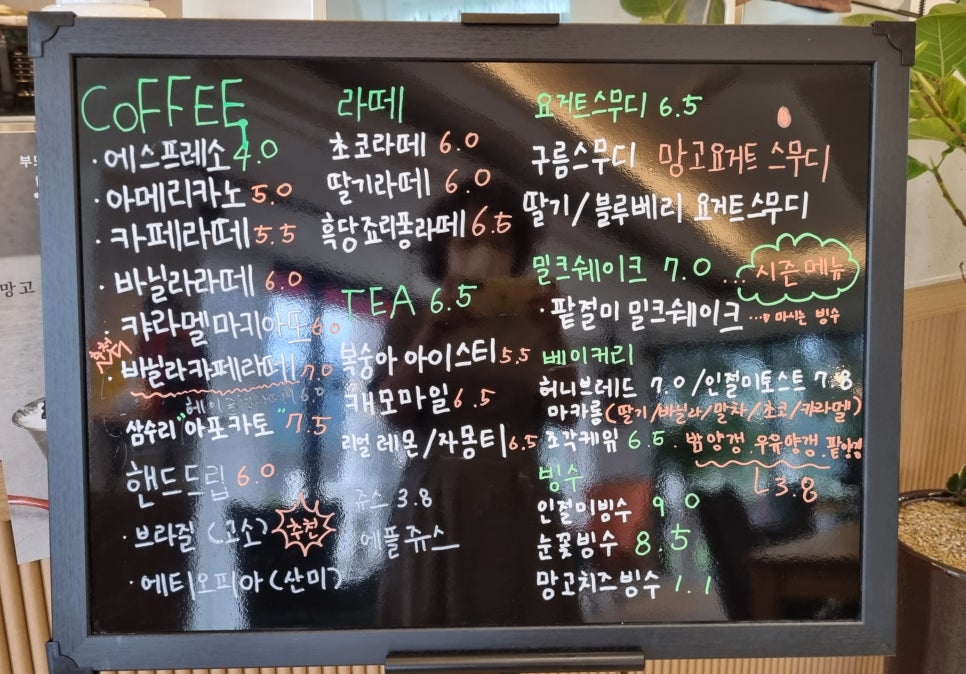 COFFEE
· 에스프레소 4.0
· 아메리카노 5.0
· 카페라떼 5.5
· 바닐라라떼 6.0
· 캬라멜마키아또 6.0
추천
· 바닐라카페라떼 7.0
헤이즐넛라떼 6.0
삼수리 "아포카토" 7.5
핸드드립 6.0
· 브라질 (고소) 추천
· 에티오피아 (산미)
라떼
초코라떼 6.0
딸기라떼 6.0
흑당죠리퐁라떼 6.5
TEA 6.5
복숭아 아이스티 5.5
캐모마일 6.5
리얼 레몬/자몽티 6.5
쥬스 3.8
에플쥬스
요거트스무디 6.5
구름스무디 망고요거트 스무디
딸기/블루베리 요거트스무디
밀크쉐이크 7.0 ... 시즌메뉴
· 팥절미 밀크쉐이크 ... 마시는 빙수
베이커리
허니브레드 7.0 /인절미토스트 7.8
마카롱 (딸기/바닐라/말차/초코/카라멜)
조각케잌 6.5 . 밤양갱 . 우유양갱 . 팥양갱
3.8
빙수
인절미빙수 9.0
눈꽃빙수 8.5
망고치즈빙수 1.1
망고